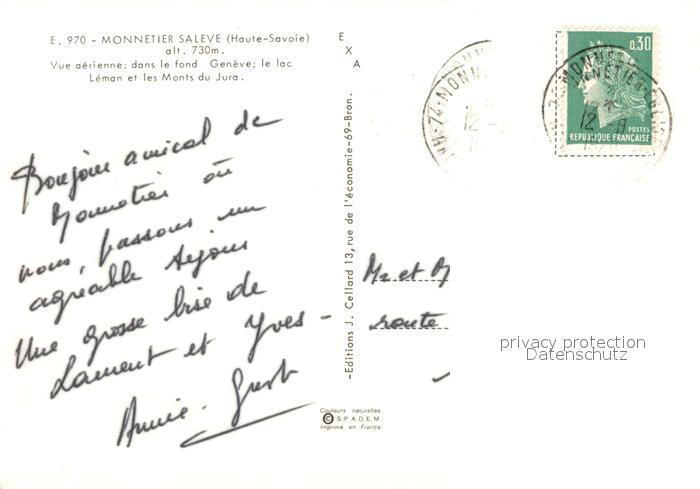 E. 970 - MONNETIER SALEVE (Haute-Savoie)
alt. 730m.
Vue aérienne; dans le fond Genève; le lac
Léman et les Monts du Jura.
E
X
A
Bonjour amical de
Monnetier où
nous passons un
agréable séjour
Une grosse bise de
Laurent et Yves -
Annie.
-Editions J. Cellard 13, rue de l'économie-69-Bron.
Couleurs naturelles
© S.P.A.D.E.M.
Imprimé en France
74-MONN
0,30
12
POSTES
REPUBLIQUE FRANÇAISE
Mr et M
route
privacy protection
Datenschutz